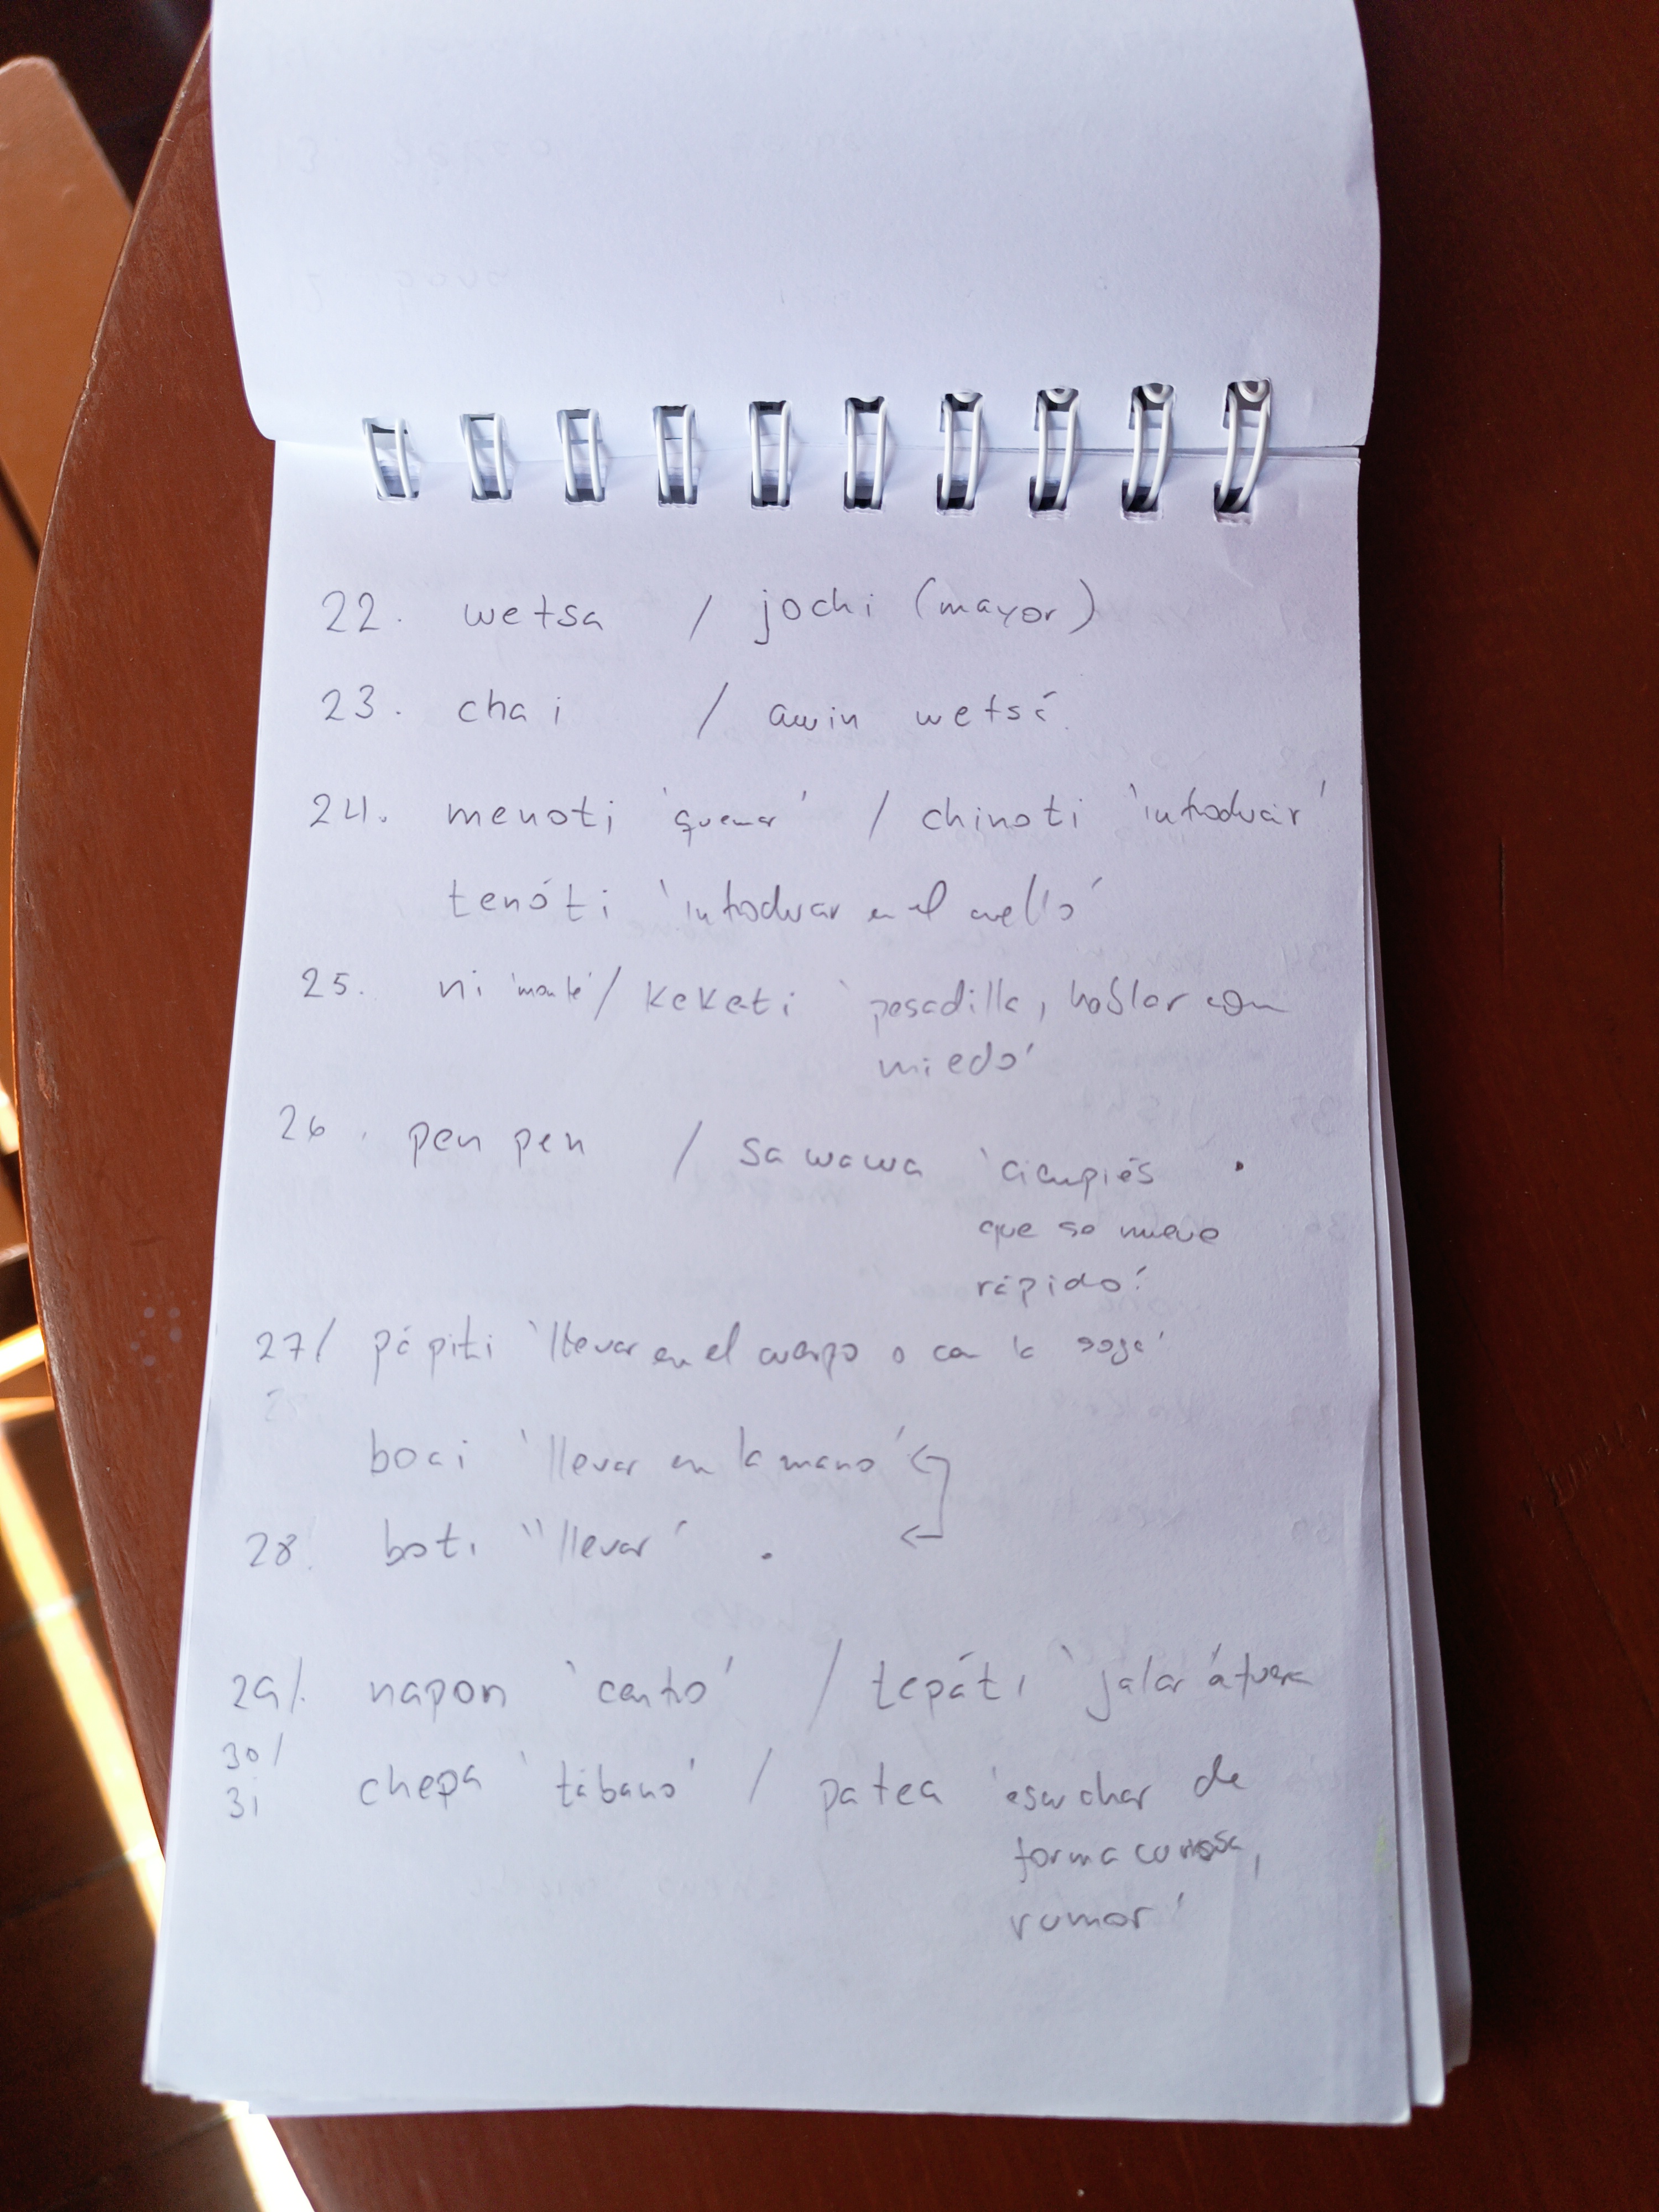 22. wetsa / jochi (mayor)
23. chai / awin wetsá
24. menoti 'quemar' / chinoti 'introducir'
tenóti 'introducir en el cuello'
25. ni 'monte' / keketi 'pesadilla, hablar con
miedo'
26. pen pen / sawawa 'ciempiés
que se mueve
rápido'
27/ pápiti 'llevar en el cuerpo o con la soga'
boai 'llevar en la mano'
28. boti "llevar'
29/. napon 'centro' / tepáti 'jalar afuera
30/
31 chepa 'tábano' / patea 'escuchar de
forma curiosa,
rumor'